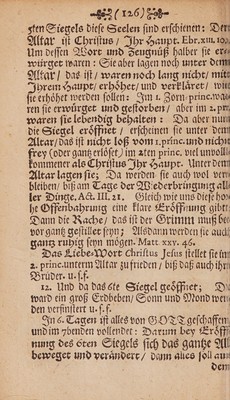 (126)
5ten Siegels diese Seelen sind erschienen: Der
Altar ist Christus / Ihr Haupt. Ebr. xiii. 10.
Um dessen Wort und Zeugnüß halber sie er-
würget waren: Sie aber lagen noch unter dem
Altar / das ist / waren noch lang nicht / mit
Ihrem Haupt / erhöhet / und verkläret / wie
sie erhöhet werden sollen: Im 1. Zorn-princ. wa-
ren sie erwürget und gestorben / aber im 2. prin.
waren sie lebendig behalten: Da aber nun
die Siegel eröffnet / erscheinen sie unter dem
Altar / das ist nicht loß vom 1. princ. und nicht
frey (oder gantz erlöset / im 2ten princ. viel unvoll-
kommener als Christus Ihr Haupt. Unter dem
Altar lagen sie; Da werden sie auch wol ver-
bleiben / biß am Tage der Wiederbringung al-
ler Dinge, Act. III. 21. Gleich wie uns diese ho-
he Offenbahrung eine klare Eröffnung gibt:
Dann die Rache / das ist der Grimm muß be-
vor gantz gestillet seyn; Alsdann werden sie auch
gantz ruhig seyn mögen. Matt xxv. 46.
Das Liebe-Wort Christus Jesus stellet sie im
2. princ. unterm Altar zu frieden / biß daß auch ihre
Brüder. u. s. f.
12. Und da das 6te Siegel geöffnet; Da
ward ein groß Erdbeben / Sonn und Mond wer-
den verfinstert u. s. f.
In 6. Tagen ist alles von GOTT geschaffen
und im 7benden vollendet: Darum bey Eröff-
nung des 6ten Siegels sich das gantze All
beweget und verändert / dann alles soll aus
dem